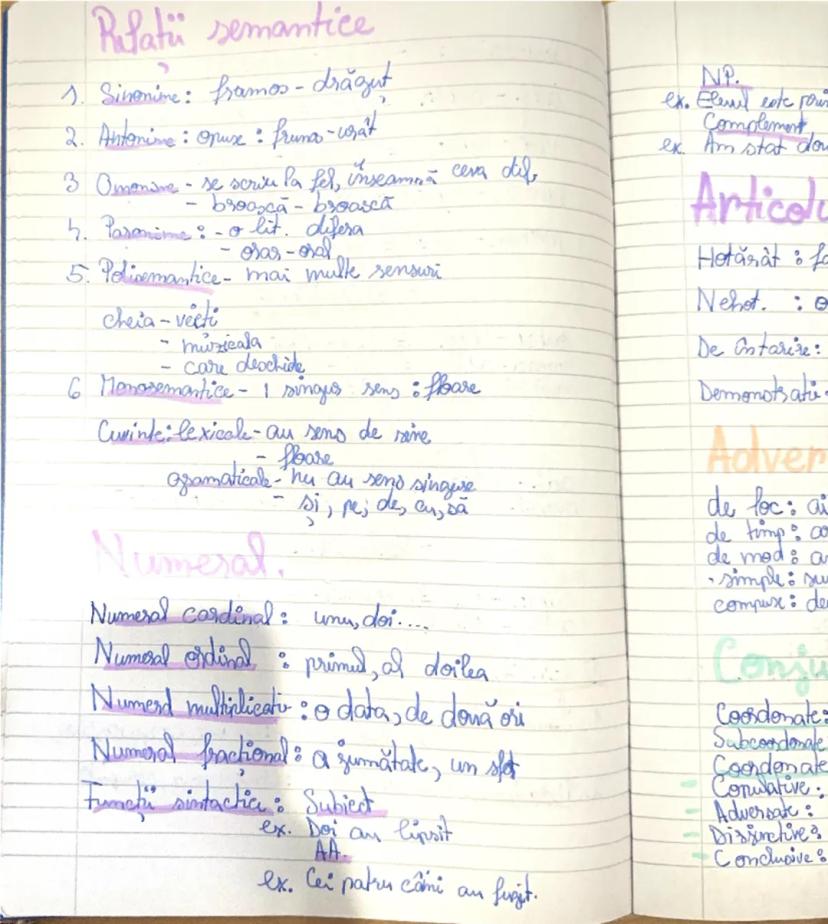 Relații semantice
1. Sinonime: frumos - drăguț
2. Antonime: opuse: frumos - urât
3 Omonime - se scriu la fel, înseamnă ceva dif.
- broască - broască
4. Paronime: - o lit. difera
- orar - oral
5. Polisemantice - mai multe sensuri
cheia - vieții
- muzicala
- care deschide
6 Monosemantice - 1 singur sens: floare
Cuvinte: lexicale - au sens de sine
- floare
gramaticale - nu au sens singure
- și, pe, de, cu, să
Numeral.
Numeral cardinal: unu, doi....
Numeral ordinal: primul, al doilea
Numeral multiplicativ: o data, de două ori
Numeral fracțional: o jumătate, un sfert
Funcții sintactice: Subiect
ex. Doi au lipsit
AA.
ex. Cei patru câini au fugit.
NP.
ex. Elevul este
Complement
ex. Am stat
Articolu
Hotărât:
Nehot. : o
De întarire:
Demonstrativ
Adver
de loc:
de timp:
de mod:
- simple:
compuse: de
Conju
Coordonate:
Subcoordonate
Coordonate
- Copulative:
- Adversate:
- Disjunctive:
- Conclusive: